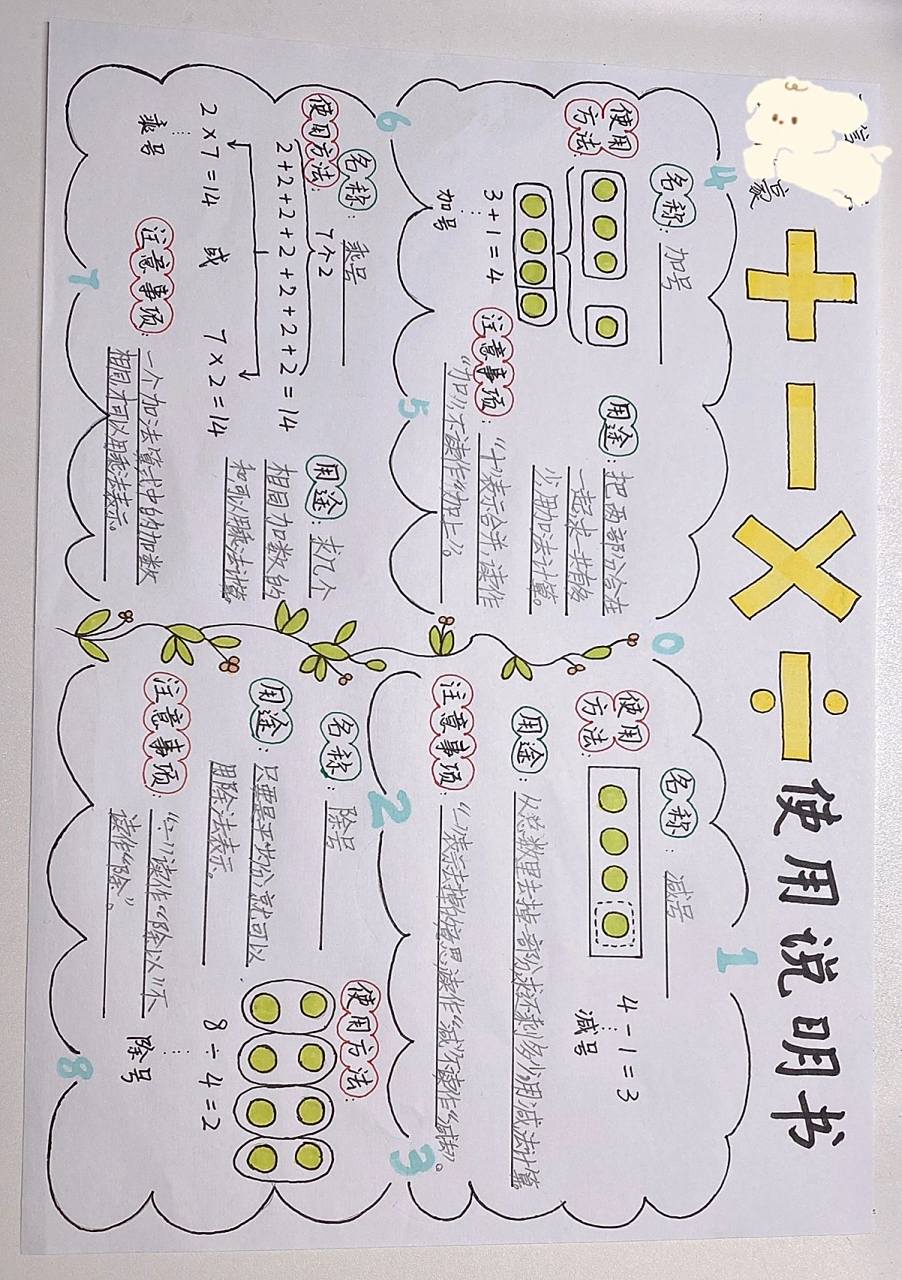 + - × ÷ 使用说明书
4
名称:加号
使用
方法:
3+1=4
加号
用途:把两部分合在
一起求一共有多
少用加法计算。
注意事项:“+”表示合并,读作
“加”,不读作“加上”。
0
1
名称:减号
使用
方法:
4-1=3
减号
用途:从总数里去掉一部分求还剩多少用减法计算
注意事项:“-”表示去掉的意思,读作“减”不读作
6
5
2
3
名称:乘号
使用方法:
7个2
2+2+2+2+2+2+2=14
2×7=14 或 7×2=14
乘号
用途:求几个
相同加数的
和可以用乘法计算。
注意事项:一个加法算式中的加数
相同才可以用乘法表示。
7
名称:除号
用途:只要是平均分就可以
用除法表示。
注意事项:“÷”读作“除以”不
读作“除”。
使用方法:
8÷4=2
除号
8